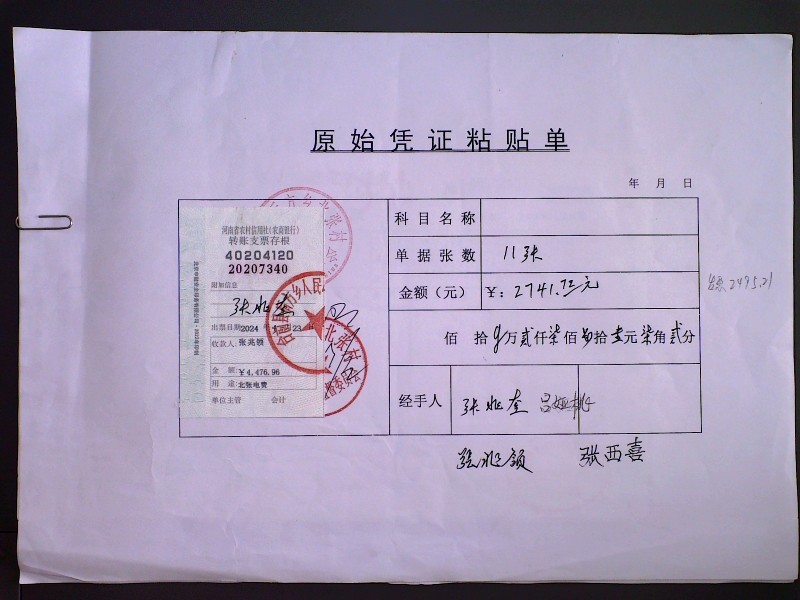 原始凭证粘贴单
年 月 日
河南省农村信用社(农商银行)
转账支票存根
40204120
20207340
附加信息
张兆奎
出票日期2024年 月23日
收款人:张兆领
金 额:¥4,476.96
用 途:北张电费
单位主管 会计
科目名称
单据张数 11张
金额（元） ¥: 2741.72元
佰 拾 万贰仟柒佰 拾 元柒角贰分
经手人 张兆奎
张兆领 张西喜
2495.21
北张村
乡人民
北张村
委员会